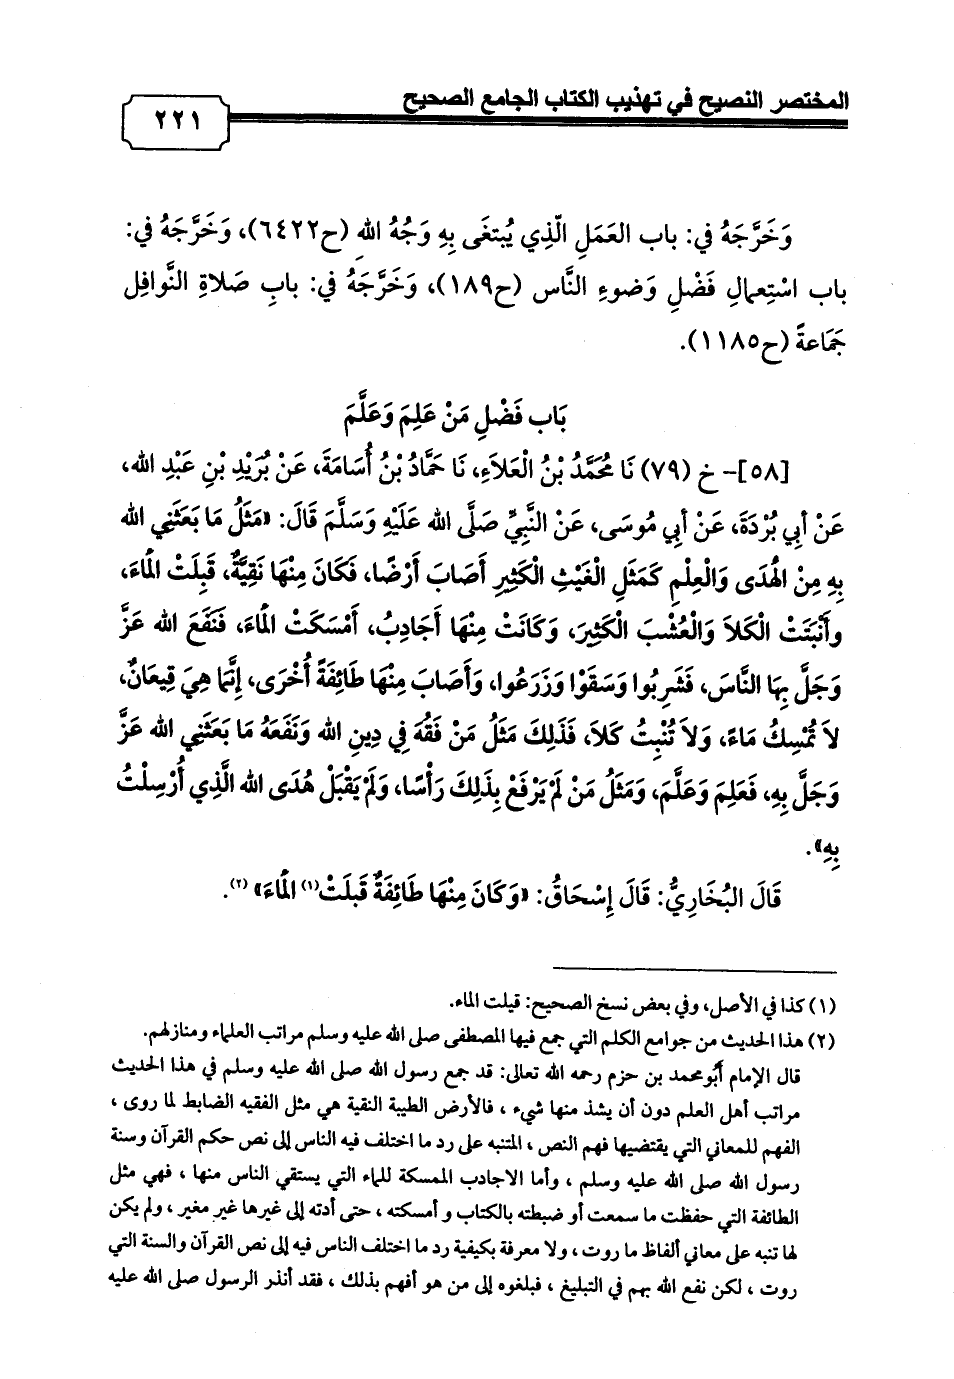 المختصر النصيح في تهذيب الكتاب الجامع الصحيح
٢٢١
وَخَرَّجَهُ في: باب العَمَلِ الّذِي يُبتغَى بِهِ وَجْهُ الله (ح٦٤٢٢)، وَخَرَّجَهُ في:
باب اسْتِعمالِ فَضْلِ وَضوءِ النَّاس (ح١٨٩)، وَخَرَّجَهُ في: بابِ صَلاةِ النَّوافِل
جَمَاعةً (ح١١٨٥).
بَاب فَضْلِ مَنْ عَلِمَ وَعَلَّمَ
[٥٨]- خ (٧٩) نَا مُحَمَّدُ بْنُ الْعَلاَءِ، نَا حَمَّادُ بْنُ أُسَامَةَ، عَنْ بُرَيْدِ بْنِ عَبْدِ الله،
عَنْ أبِي بُرْدَةَ، عَنْ أبِي مُوسَى، عَنْ النَّبِيِّ صَلَّى الله عَلَيْهِ وَسَلَّمَ قَالَ: «مَثَلُ مَا بَعَثَنِي الله
بِهِ مِنْ الْهُدَى وَالْعِلْمِ كَمَثَلِ الْغَيْثِ الْكَثِيرِ أصَابَ أرْضًا، فَكَانَ مِنْهَا نَقِيَّةٌ، قَبِلَتْ الْمَاءَ،
وأنْبَتَتْ الْكَلاَ وَالْعُشْبَ الْكَثِيرَ، وَكَانَتْ مِنْهَا أجَادِبُ، أمْسَكَتْ الْمَاءَ، فَنَفَعَ الله عَزَّ
وَجَلَّ بِهَا النَّاسَ، فَشَرِبُوا وَسَقَوْا وَزَرَعُوا، وَأصَابَ مِنْهَا طَائِفَةً أُخْرَى، إنَّمَا هِيَ قِيعَانٌ،
لاَ تُمْسِكُ مَاءً، وَلاَ تُنْبِتُ كَلاَ، فَذَلِكَ مَثَلُ مَنْ فَقُهَ فِي دِينِ الله وَنَفَعَهُ مَا بَعَثَنِي الله عَزَّ
وَجَلَّ بِهِ، فَعَلِمَ وَعَلَّمَ، وَمَثَلُ مَنْ لَمْ يَرْفَعْ بِذَلِكَ رَأْسًا، وَلَمْ يَقْبَلْ هُدَى الله الَّذِي أُرْسِلْتُ
بِهِ».
قَالَ البُخَارِيُّ: قَالَ إِسْحَاقُ: «وَكَانَ مِنْهَا طَائِفَةٌ قَبلَتْ(١) الْمَاءَ» (٢).
(١) كذا في الأصل، وفي بعض نسخ الصحيح: قيلت الماء.
(٢) هذا الحديث من جوامع الكلم التي جمع فيها المصطفى صلى الله عليه وسلم مراتب العلماء ومنازلهم.
قال الإمام أبُومحمد بن حزم رحمه الله تعالى: قد جمع رسول الله صلى الله عليه وسلم في هذا الحديث
مراتب أهل العلم دون أن يشذ منها شيء ، فالأرض الطيبة النقية هي مثل الفقيه الضابط لما روى ،
الفهم للمعاني التي يقتضيها فهم النص ، المتنبه على رد ما اختلف فيه الناس إلى نص حكم القرآن وسنة
رسول الله صلى الله عليه وسلم ، وأما الاجادب الممسكة للماء التي يستقي الناس منها ، فهي مثل
الطائفة التي حفظت ما سمعت أو ضبطته بالكتاب و أمسكته ، حتى أدته إلى غيرها غير مغير ، ولم يكن
لها تنبه على معاني ألفاظ ما روت ، ولا معرفة بكيفية رد ما اختلف الناس فيه إلى نص القرآن والسنة التي
روت ، لكن نفع الله بهم في التبليغ ، فبلغوه إلى من هو أفهم بذلك ، فقد أنذر الرسول صلى الله عليه